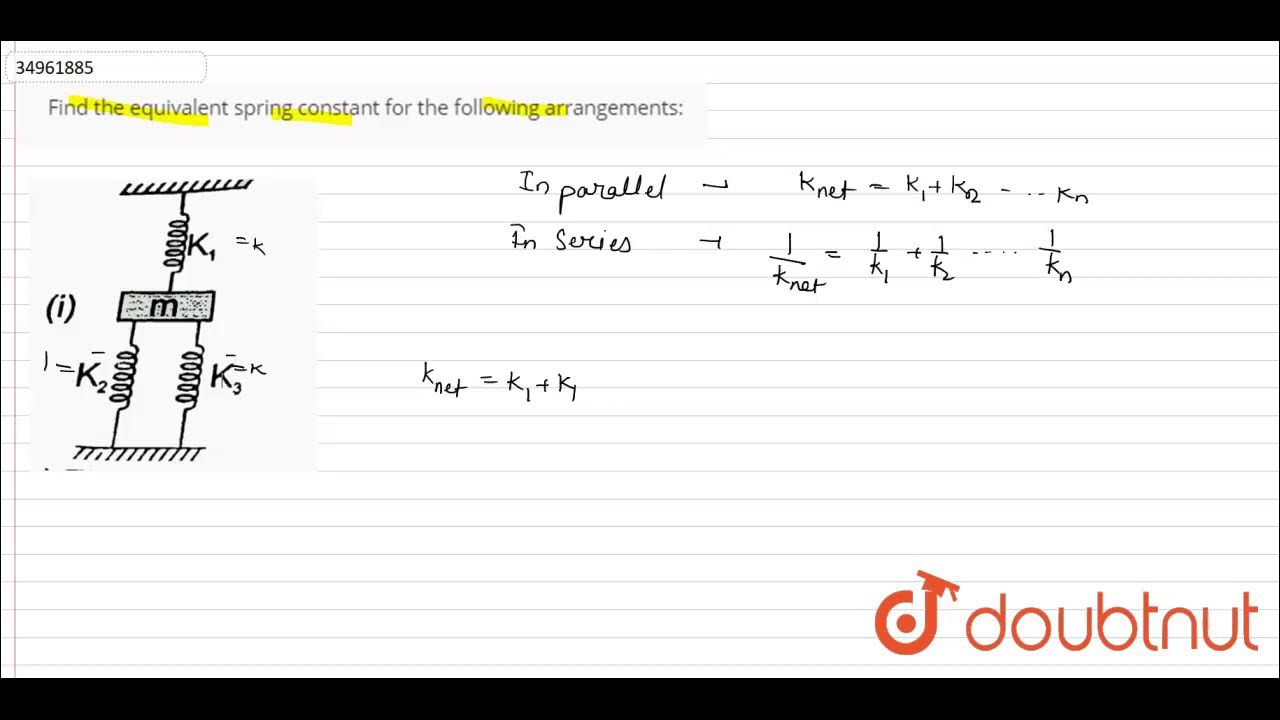 34961885
Find the equivalent spring constant for the following arrangements:
In parallel → K net = K1 + K2 - ... Kn
In Series → 1/Knet = 1/K1 + 1/K2 ..... 1/Kn
K1 = K
(i)
m
K2
K3 = K
Knet = K1 + K
doubtnut